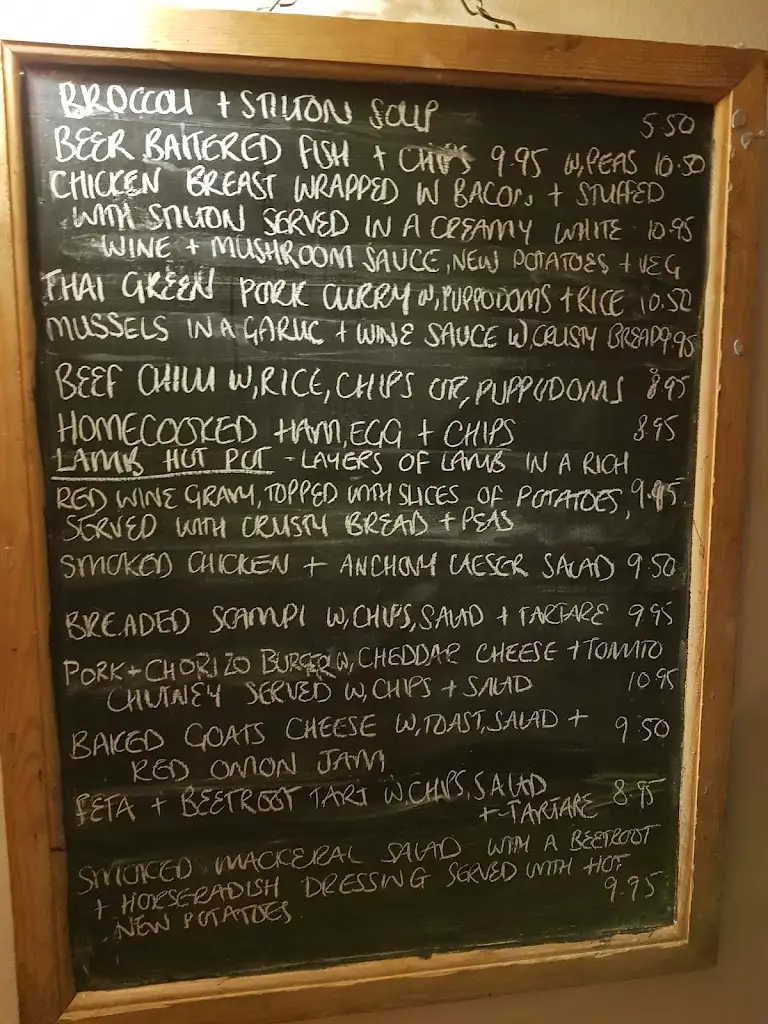 BROCCOLI + STILTON SOUP 5.50
BEER BATTERED FISH + CHIPS 9.95 W, PEAS 10.50
CHICKEN BREAST WRAPPED IN BACON + STUFFED
WITH STILTON SERVED IN A CREAMY WHITE 10.95
WINE + MUSHROOM SAUCE, NEW POTATOES + VEG
THAI GREEN PORK CURRY W, PUPPODOMS + RICE 10.50
MUSSELS IN A GARLIC + WINE SAUCE W, CRUSTY BREAD 9.95
BEEF CHILLI W, RICE, CHIPS OR, PUPPODOMS 8.95
HOMECOOKED HAM, EGG + CHIPS 8.95
LAMB HOT POT - LAYERS OF LAMB IN A RICH
RED WINE GRAVY, TOPPED WITH SLICES OF POTATOES, 9.95
SERVED WITH CRUSTY BREAD + PEAS
SMOKED CHICKEN + ANCHOVY CAESER SALAD 9.50
BREADED SCAMPI W, CHIPS, SALAD + TARTARE 9.95
PORK + CHORIZO BURGER W, CHEDDAR CHEESE + TOMATO
CHUTNEY SERVED W, CHIPS + SALAD 10.95
BAKED GOATS CHEESE W, TOAST, SALAD + 9.50
RED ONION JAM
FETA + BEETROOT TART W, CHIPS, SALAD
+ TARTARE 8.95
SMOKED MACKERAL SALAD WITH A BEETROOT
+ HORSERADISH DRESSING SERVED WITH HOT
NEW POTATOES 9.95